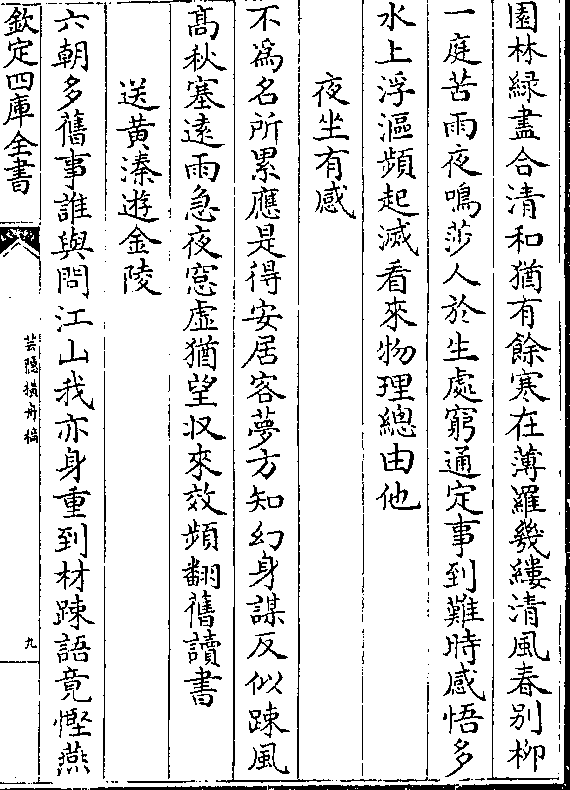 園林緑盡合清和猶有餘寒在薄羅幾縷清風春别柳
一庭苦雨夜鳴莎人於生處窮通定事到難時感悟多
水上浮漚頻起滅看來物理總由他
夜坐有感
不為名所累應是得安居客夢方知幻身謀反似踈風
髙秋塞遠雨急夜窓虚猶望收來效頻翻舊讀書
送黄溱遊金陵
六朝多舊事誰與問江山我亦身重到材踈語竟慳燕
欽定四庫全書
芸隠横舟稿
九